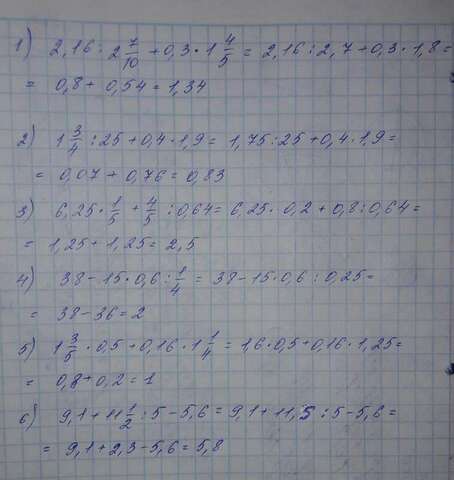 1) 2,16 : 2 7/10 + 0,3 · 1 4/5 = 2,16 : 2,7 + 0,3 · 1,8 =
= 0,8 + 0,54 = 1,34
2) 1 3/4 : 25 + 0,4 · 1,9 = 1,75 : 25 + 0,4 · 1,9 =
= 0,07 + 0,76 = 0,83
3) 6,25 · 1/5 + 4/5 : 0,64 = 6,25 · 0,2 + 0,8 : 0,64 =
= 1,25 + 1,25 = 2,5
4) 38 - 15 · 0,6 : 1/4 = 38 - 15 · 0,6 : 0,25 =
= 38 - 36 = 2
5) 1 3/5 · 0,5 + 0,16 · 1 1/4 = 1,6 · 0,5 + 0,16 · 1,25 =
= 0,8 + 0,2 = 1
6) 9,1 + 11 1/2 : 5 - 5,6 = 9,1 + 11,5 : 5 - 5,6 =
= 9,1 + 2,3 - 5,6 = 5,8